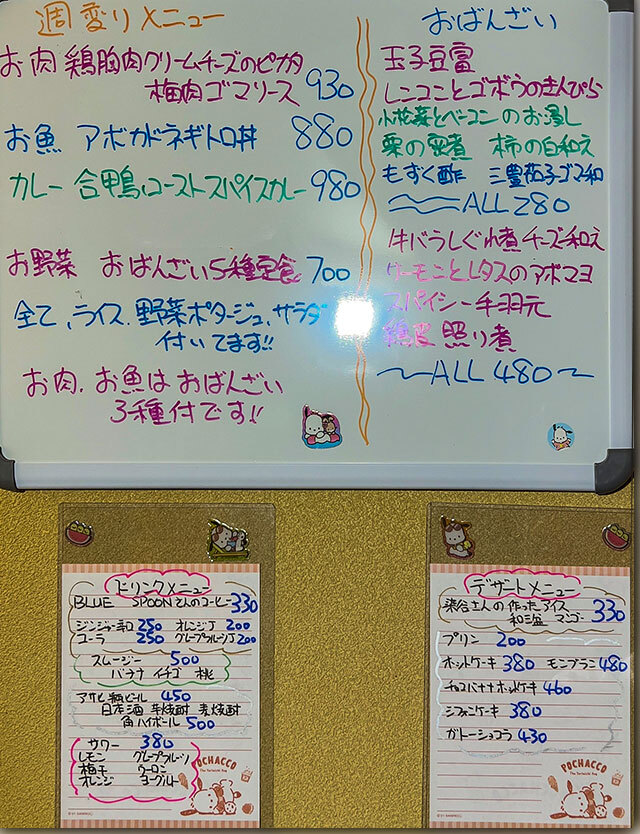 週変りメニュー
お肉 鶏胸肉クリームチーズのピカタ
梅肉ゴマソース 930
お魚 アボカドネギトロ丼 880
カレー 合鴨ローストスパイスカレー 980
お野菜 おばんざい5種定食 700
全て、ライス、野菜ポタージュ、サラダ
付いてます!!
お肉、お魚はおばんざい
3種付です!!
おばんざい
玉子豆富
レンコンとゴボウのきんぴら
小松菜とベーコンのお浸し
栗の蜜煮 柿の白和え
もずく酢 三豊茄子ゴマ和
ALL 280
牛バラしぐれ煮チーズ和え
サーモンとレタスのアボマヨ
スパイシー手羽元
鶏皮 照り煮
ALL 480
ドリンクメニュー
BLUE SPOONさんのコーヒー 330
ジンジャー辛口 250 オレンジJ 200
コーラ 250 グレープフルーツJ 200
スムージー 500
バナナ イチゴ 桃
アサヒ瓶ビール 450
日本酒 芋焼酎 麦焼酎
角ハイボール 500
サワー 380
レモン グレープフルーツ
梅干 ウーロン
オレンジ ヨーグルト
POCHACCO
デザートメニュー
落合さんの作ったアイス
和三盆 マンゴー 330
プリン 200
ホットケーキ 380 モンブラン 480
チョコバナナホットケーキ 460
シフォンケーキ 380
ガトーショコラ 430
POCHACCO